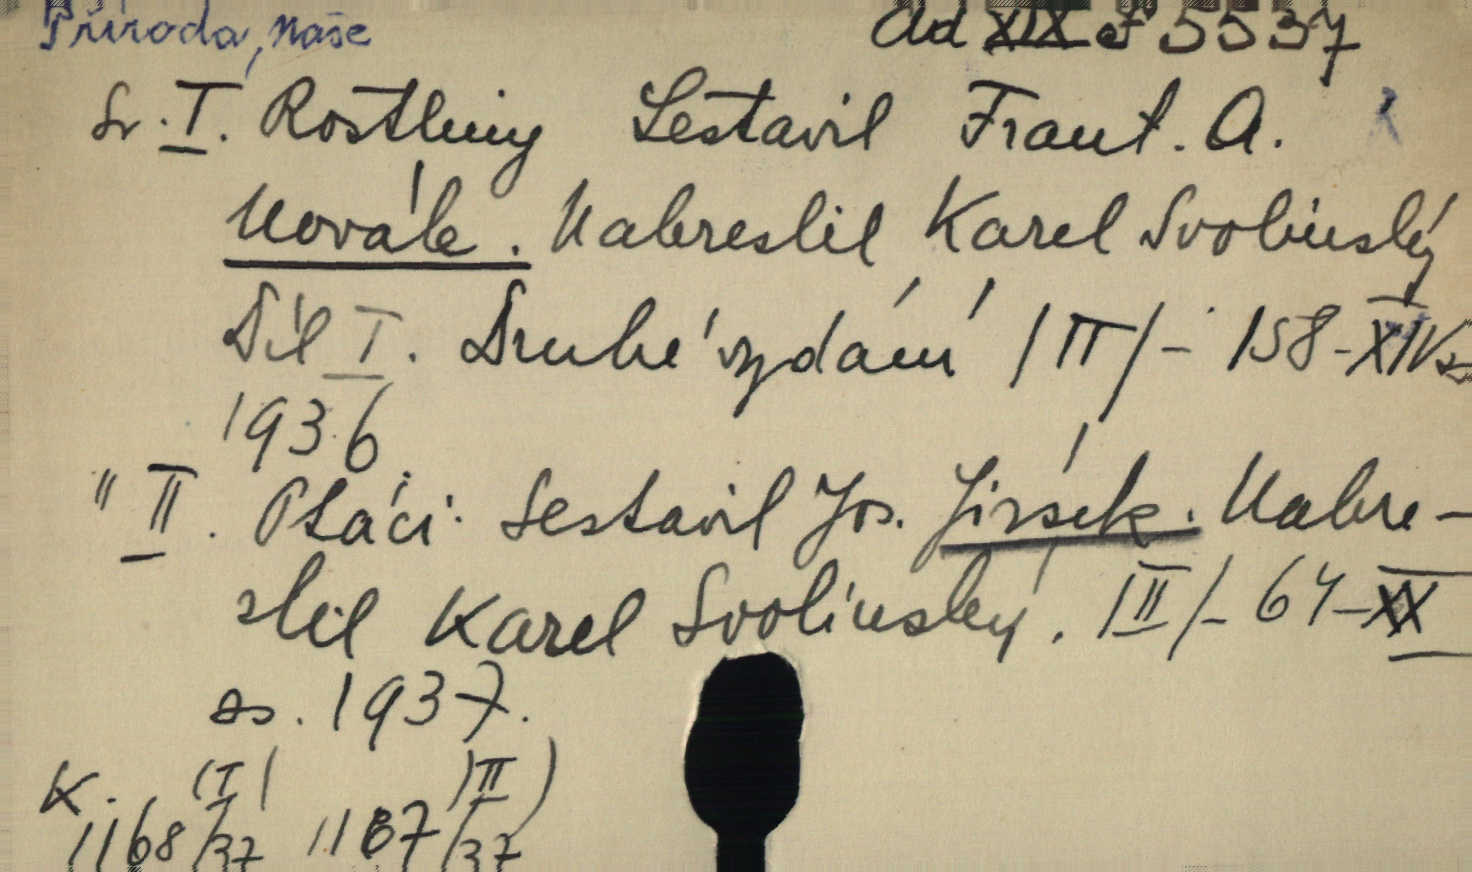 Příroda, naše
Ad XIX F 5537
Sv. I. Rostliny Sestavil Frant. A.
Novák. Nakreslil Karel Svolinský
Díl I. Druhé vydání /II/ - 158 - XIV s
1936.
" II. Ptáci. Sestavil Jos. Jirsík. Nakre-
slil Karel Svolinský. /II/ - 64 - XX
ss. 1937.
K. (I) (II)
1168/37 1187/37